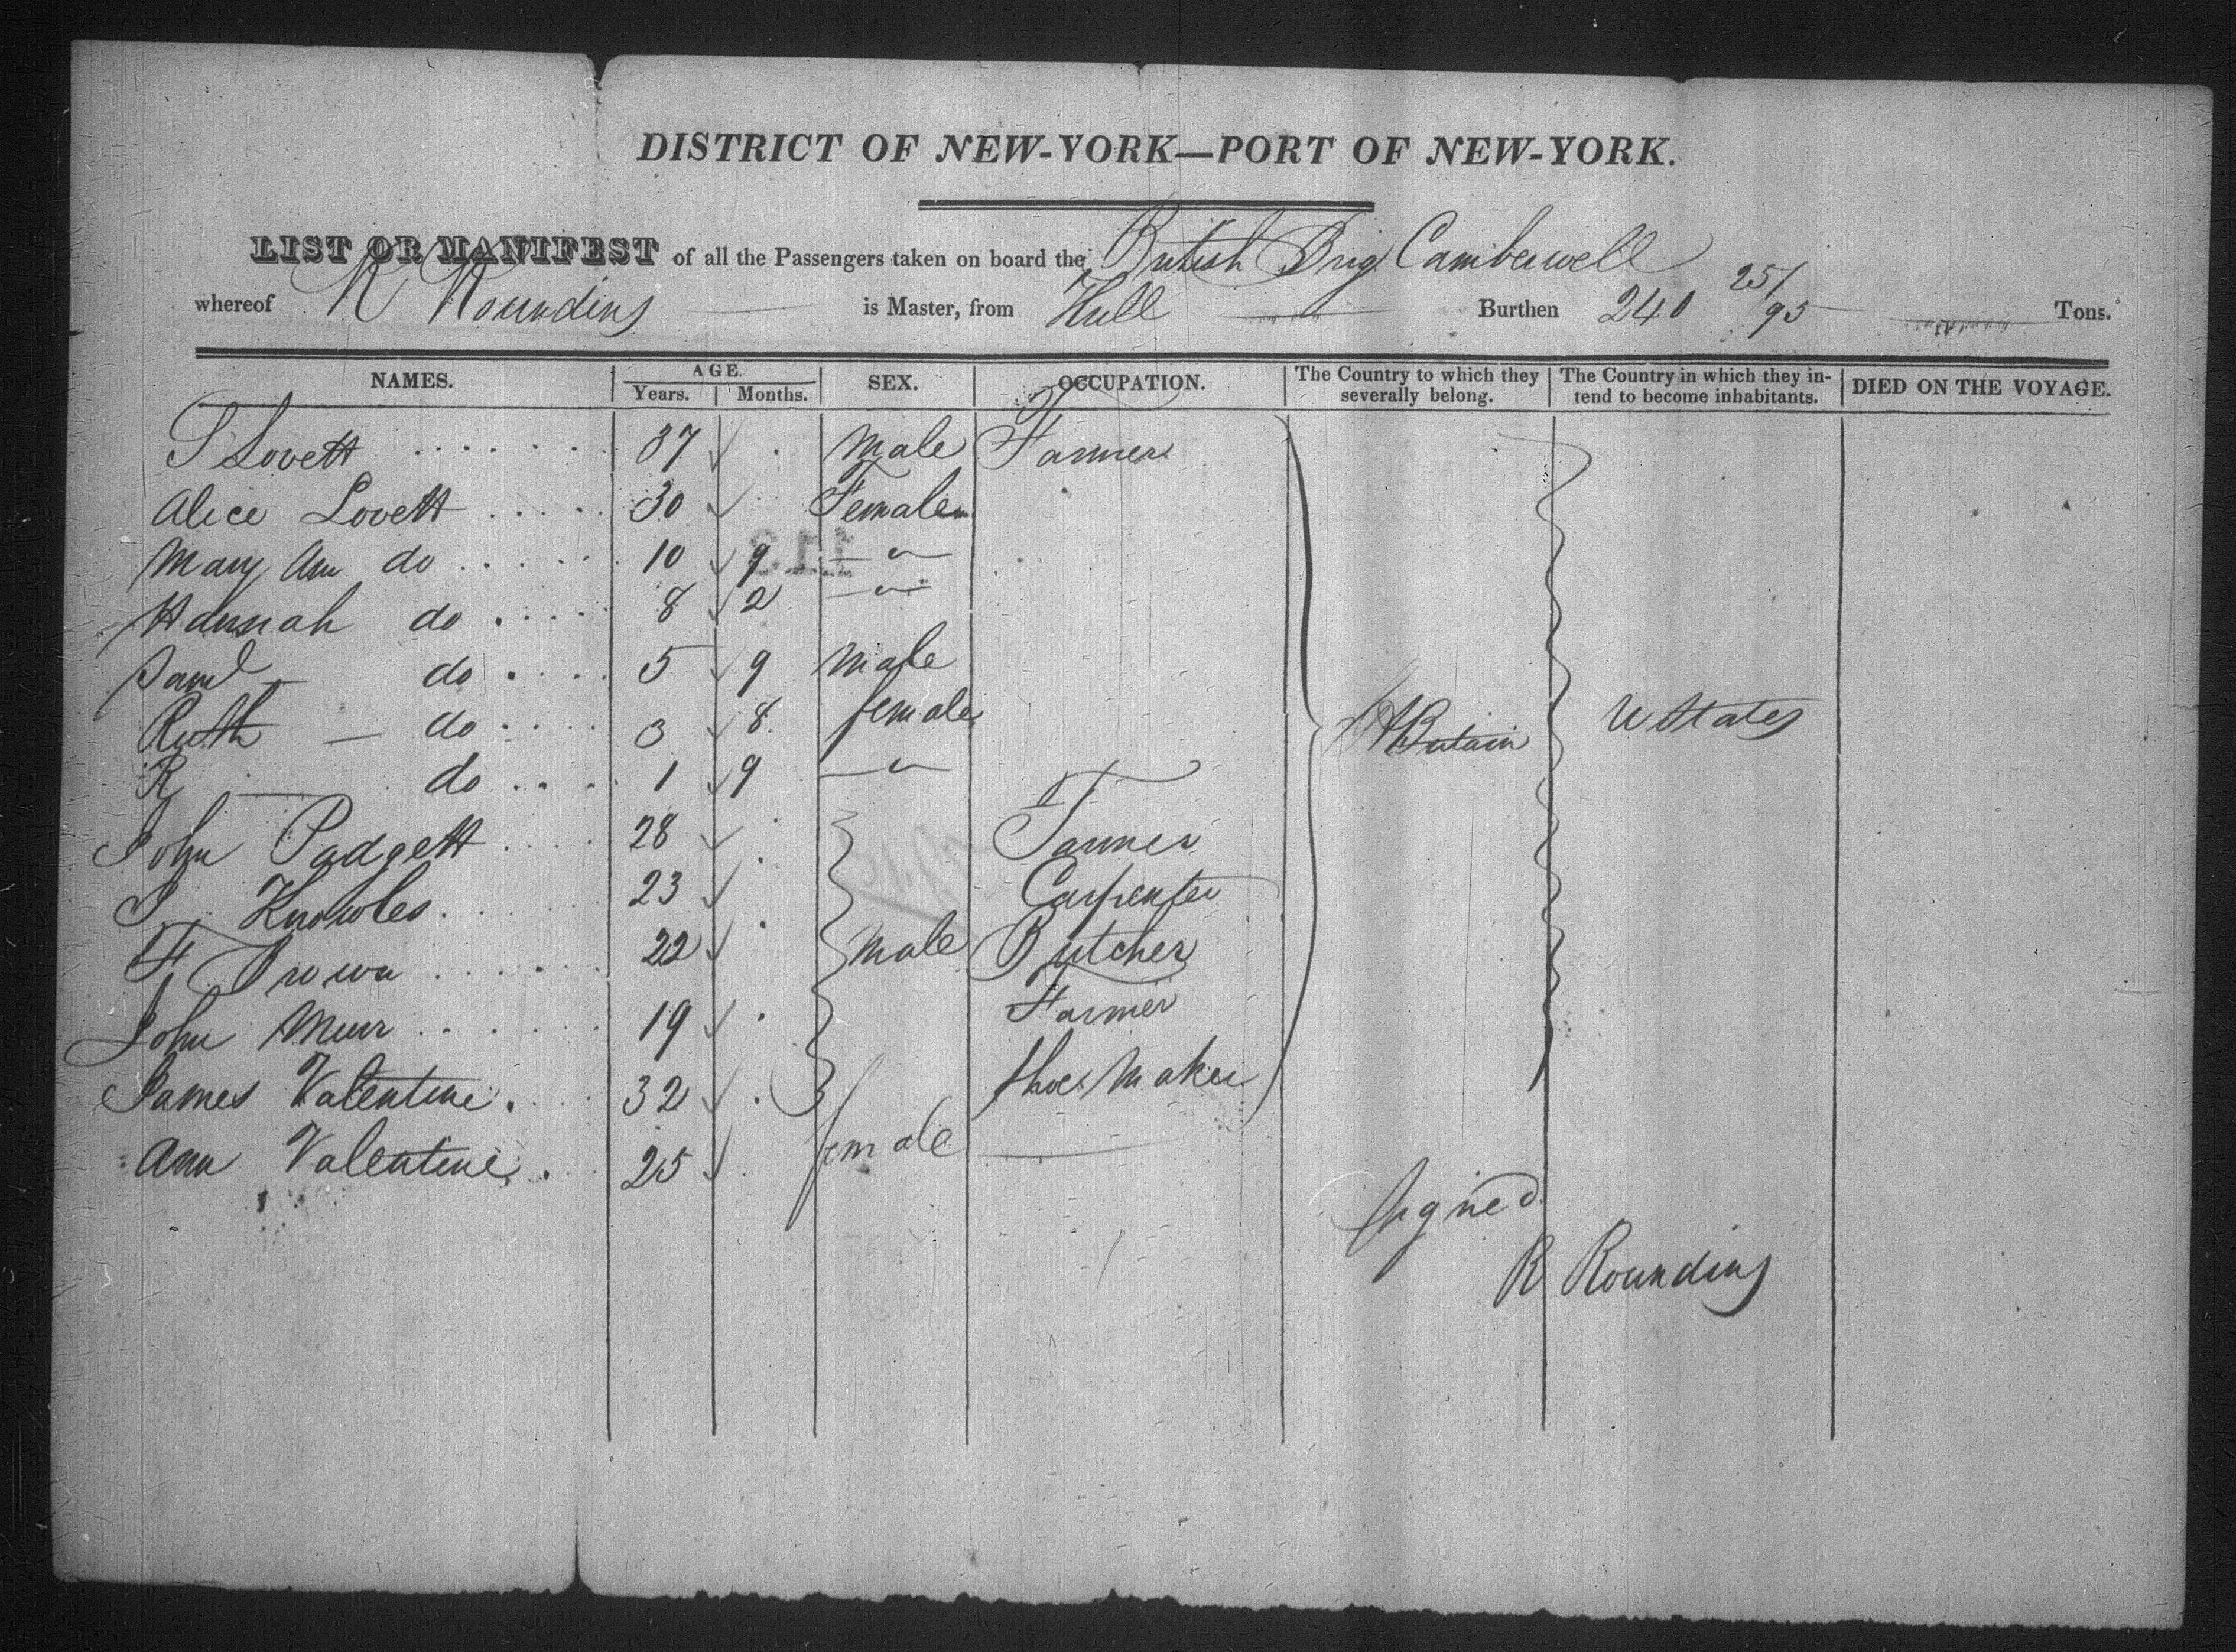 DISTRICT OF NEW-YORK—PORT OF NEW-YORK.
LIST OR MANIFEST of all the Passengers taken on board the British Brig Camberwell
whereof R Roundins is Master, from Hull Burthen 240 25/95 Tons.
NAMES. AGE. Years. Months. SEX. OCCUPATION. The Country to which they severally belong. The Country in which they intend to become inhabitants. DIED ON THE VOYAGE.
Lovett 37 Male Farmer
Alice Lovett 30 Female
Mary Ann do 10 9 — " —
Hannah do 8 2 — " —
Saml do 5 9 Male
Ruth — do 3 8 female
R — do 1 9 — " —
Britain U States
John Padgett 28 
Knowles 23 Carpenter
Brown 22 Male Butcher
John Muir 19 Farmer
James Valentine 32 Shoe Maker
Ann Valentine 25 female —
Signed
R Roundins
113